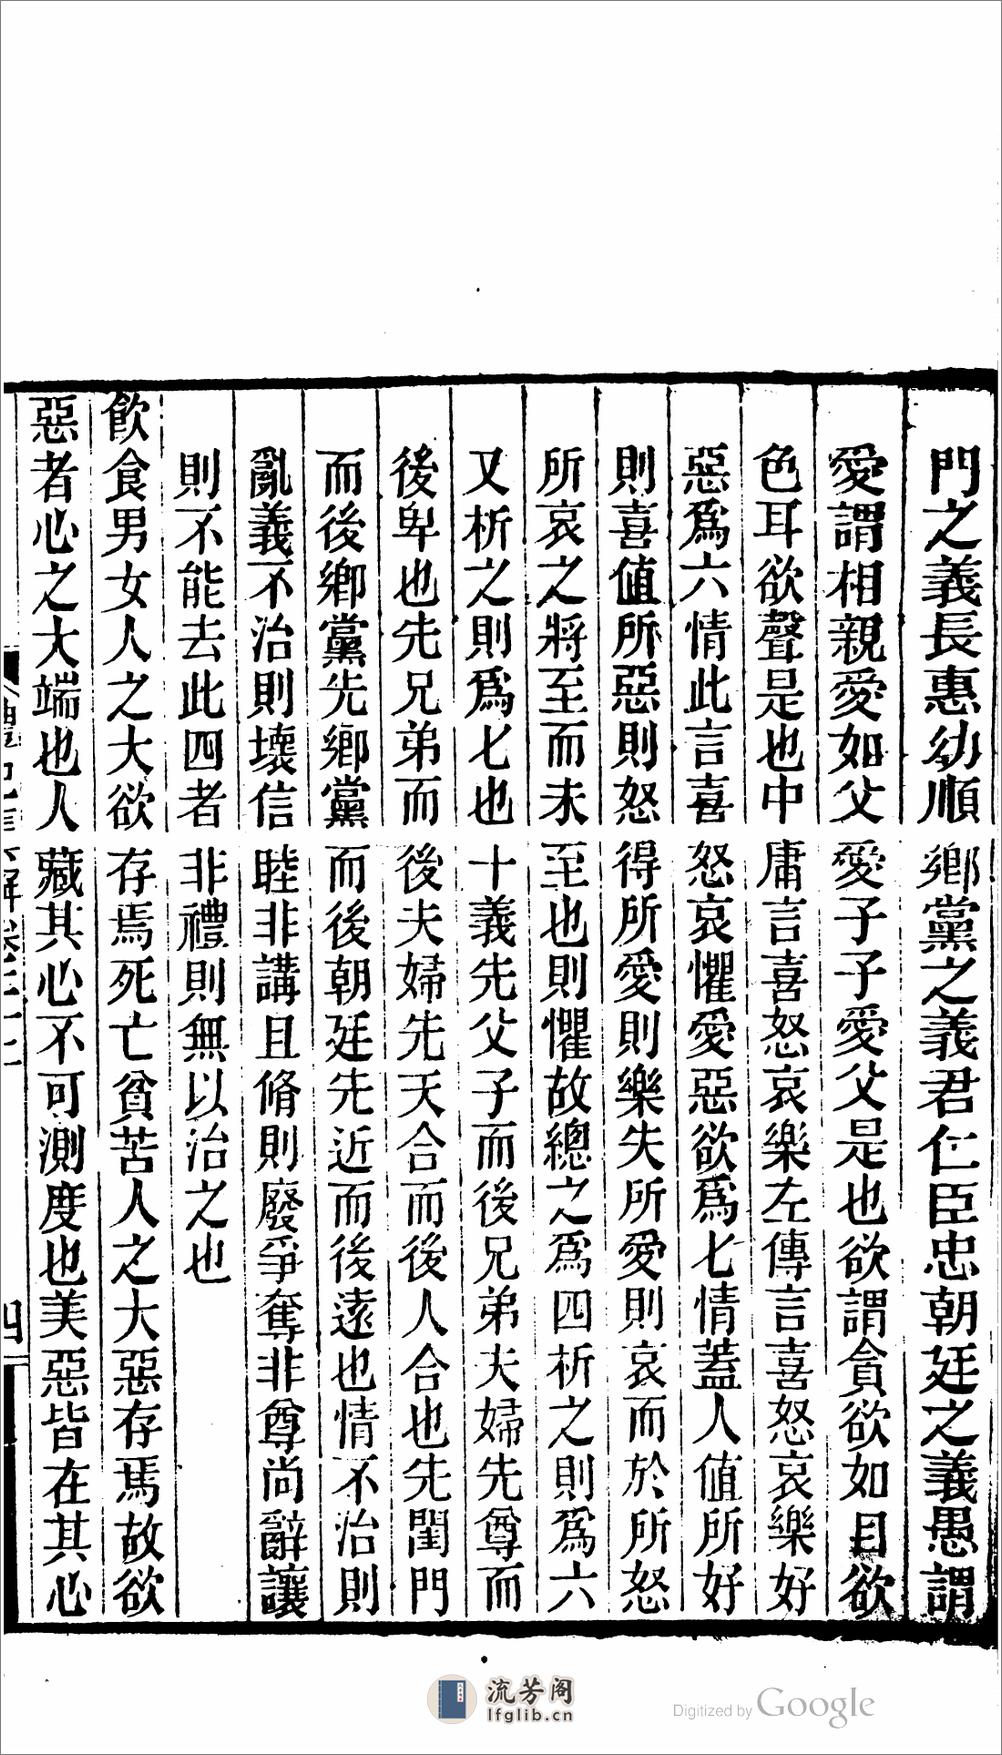 門之義長惠幼順鄉黨之義君仁臣忠朝廷之義愚謂
愛謂相親愛如父愛子子愛父是也欲謂貪欲如目欲
色耳欲聲是也中庸言喜怒哀樂左傳言喜怒哀樂好
惡爲六情此言喜怒哀懼愛惡欲爲七情蓋人値所好
則喜値所惡則怒得所愛則樂失所愛則哀而於所怒
所哀之將至而未至也則懼故總之爲四析之則爲六
又析之則爲七也十義先父子而後兄弟夫婦先尊而
後卑也先兄弟而後夫婦先天合而後人合也先閨門
而後鄉黨先鄉黨而後朝廷先近而後遠也情不治則
亂義不治則壞信睦非講且脩則廢爭奪非尊尚辭讓
則不能去此四者非禮則無以治之也
飮食男女人之大欲存焉死亡貧苦人之大惡存焉故欲
惡者心之大端也人藏其心不可測度也美惡皆在其心
四
流芳阁
lfglib.cn
Digitized by Google